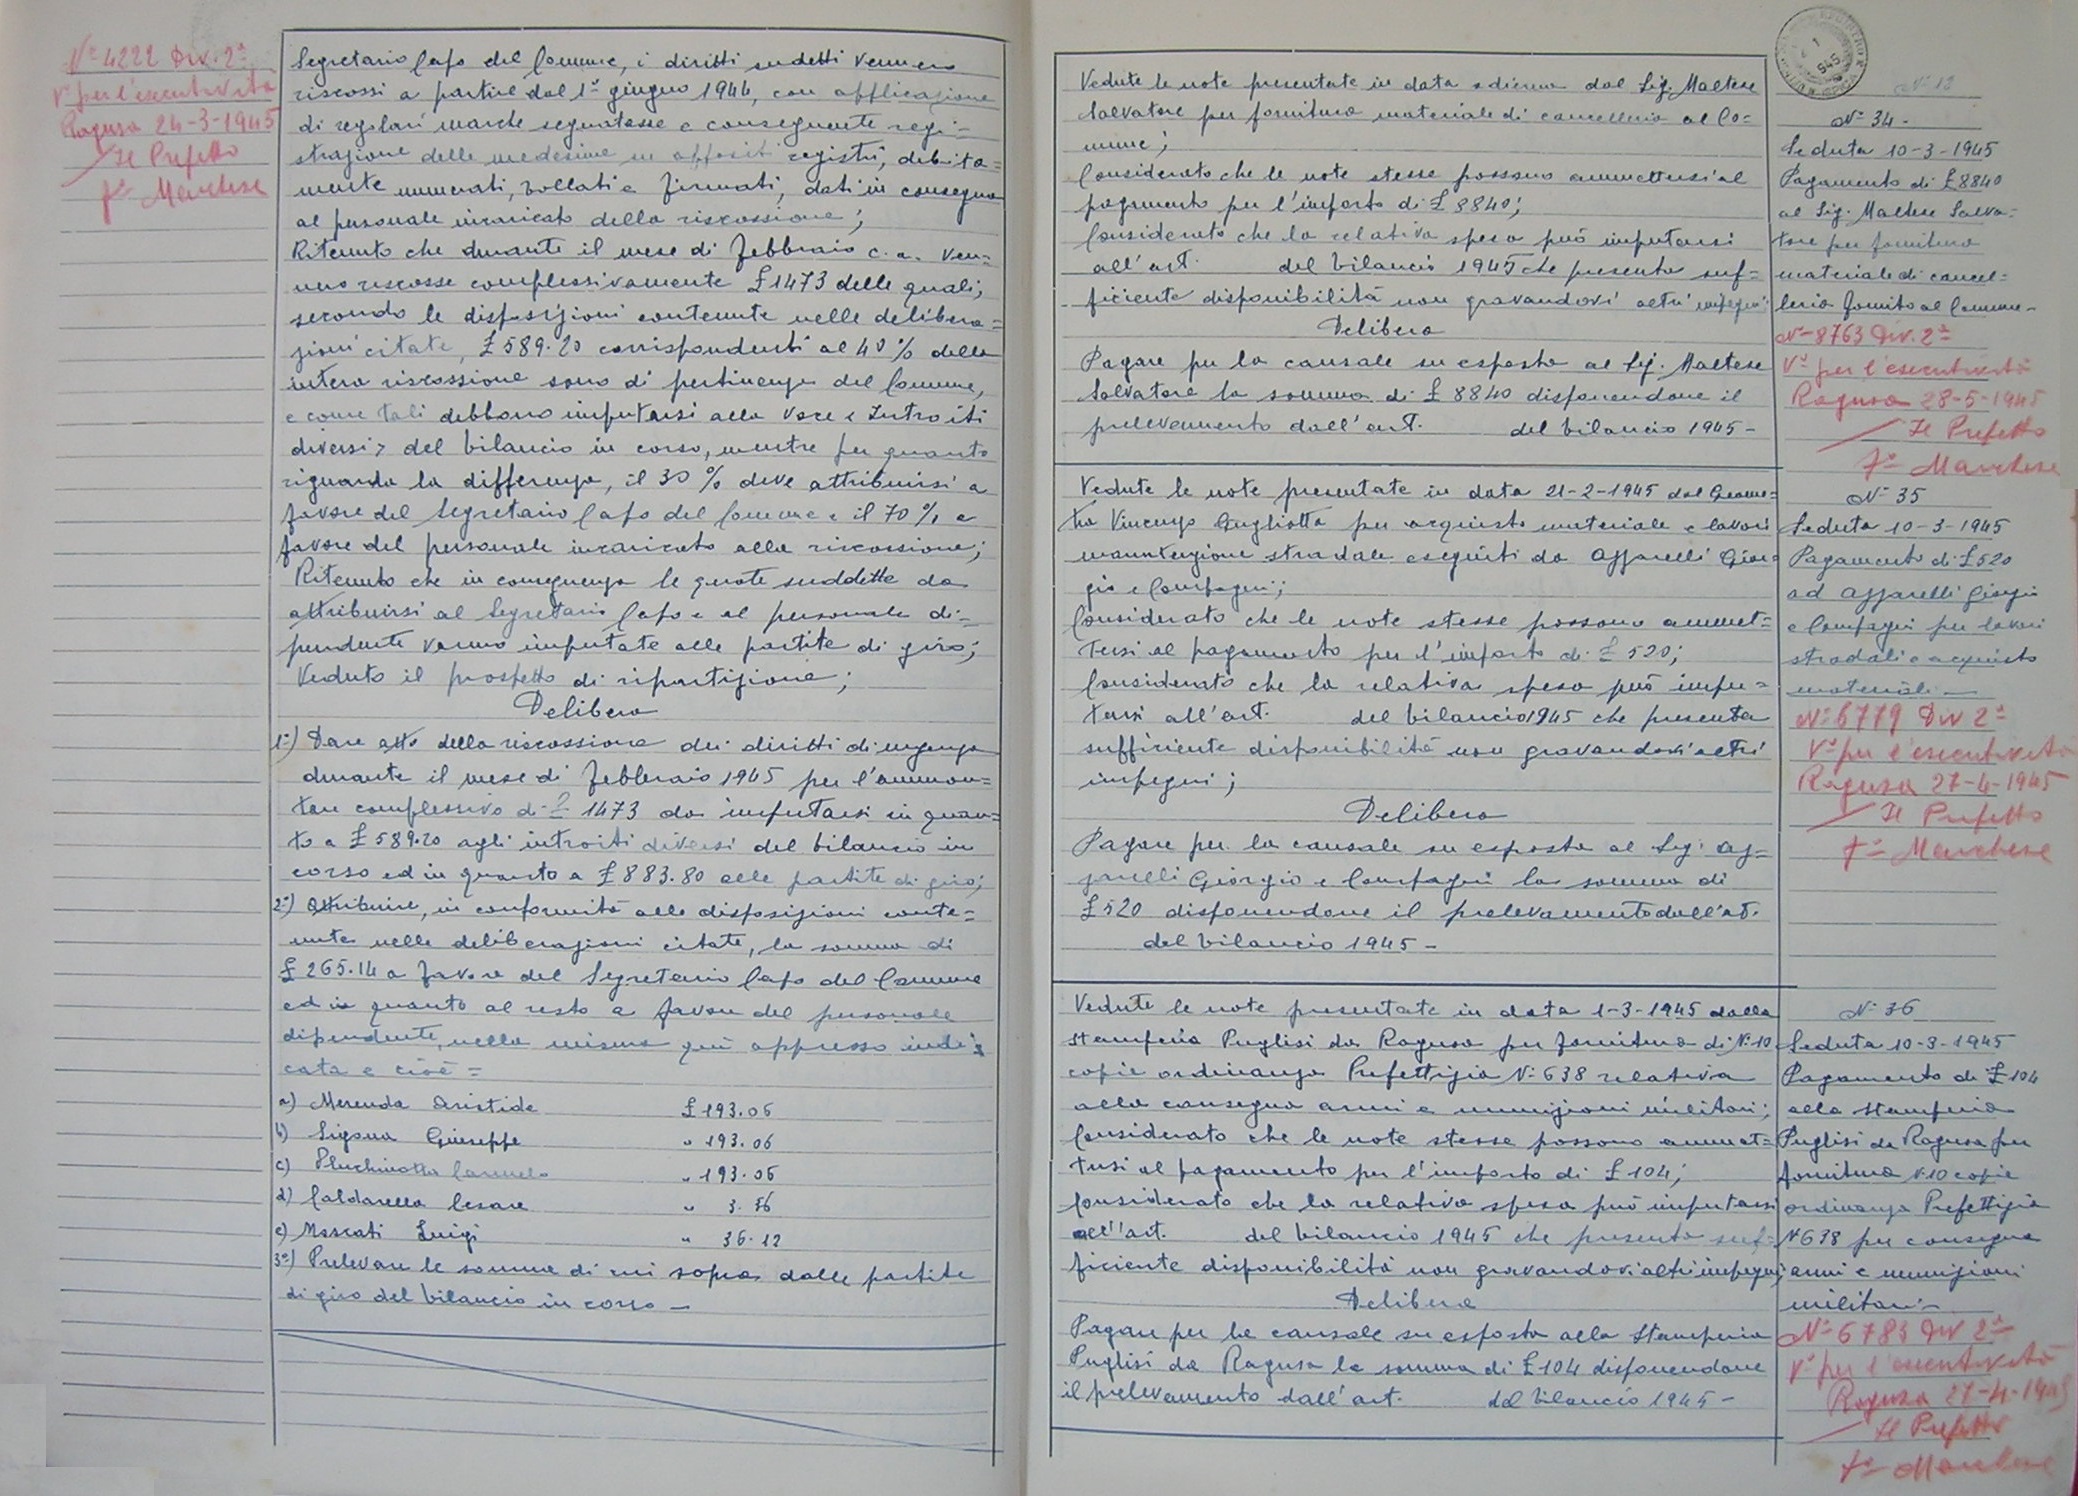 Nº 4222 Div. 2ª
Vº per l'esecutività
Ragusa 24-3-1945
Il Prefetto
fº Marchese
Segretario Capo del Comune, i diritti sudetti vennero
riscossi a partire dal 1º giugno 1944, con applicazione
di regolari marche segnatasse e conseguente regi=
strazione delle medesime su appositi registri, debita=
mente numerati, bollati e firmati, dati in consegna
al personale incaricato della riscossione;
Ritenuto che durante il mese di Febbraio c.a. ven=
nero riscosse complessivamente £ 1473 delle quali,
secondo le disposizioni contenute nelle delibera=
zioni citate, £ 589.20 corrispondenti al 40% della
intera riscossione sono di pertinenza del Comune,
e come tali debbono imputarsi alla voce « Introiti
diversi » del bilancio in corso, mentre per quanto
riguarda la differenza, il 30% deve attribuirsi a
favore del Segretario Capo del Comune e il 70% a
favore del personale incaricato alla riscossione;
Ritenuto che in conseguenza le quote suddette da
attribuirsi al Segretario Capo e al personale di=
pendente vanno imputate alle partite di giro;
Veduto il prospetto di ripartizione;
Delibera
1º) Dare atto della riscossione dei diritti di urgenza
durante il mese di Febbraio 1945 per l'ammon=
tare complessivo di £ 1473 da imputarsi in quan=
to a £ 589.20 agli introiti diversi del bilancio in
corso ed in quanto a £ 883.80 alle partite di giro;
2º) Attribuire, in conformità alle disposizioni conte=
nute nelle deliberazioni citate, la somma di
£ 265.14 a favore del Segretario Capo del Comune
ed in quanto al resto a favore del personale
dipendente, nella misura qui appresso indi=
cata e cioè =
a) Merenda Aristide £ 193.06
b) Sigona Giuseppe " 193.06
c) Pluchinotta Carmelo " 193.06
d) Caldarella Cesare " 3.36
e) Moscati Luigi " 36.12
3º) Prelevare le somme di cui sopra dalle partite
di giro del bilancio in corso —
Vedute le note presentate in data odierna dal Sig. Maltese
Salvatore per fornitura materiale di cancelleria al Co=
mune;
Considerato che le note stesse possono ammettersi al
pagamento per l'importo di £ 8840;
Considerato che la relativa spesa può imputarsi
all'art. del bilancio 1945 che presenta suf=
ficiente disponibilità non gravandovi altri impegni;
Delibera
Pagare per la causale su esposta al Sig. Maltese
Salvatore la somma di £ 8840 disponendone il
prelevamento dall'art. del bilancio 1945 —
Nº 34 -
Seduta 10-3-1945
Pagamento di £ 8840
al Sig. Maltese Salva=
tore per fornitura
materiale di cancel=
leria fornito al Comune -
Nº 8763 Div. 2ª
Vº per l'esecutività
Ragusa 28-5-1945
Il Prefetto
fº Marchese
Vedute le note presentate in data 21-2-1945 dal Geome=
tra Vincenzo Gugliotta per acquisto materiale e lavori
manutenzione stradale eseguiti da Assarelli Gior=
gio e Compagni;
Considerato che le note stesse possono ammet=
tersi al pagamento per l'importo di £ 520;
Considerato che la relativa spesa può impu=
tarsi all'art. del bilancio 1945 che presenta
sufficiente disponibilità non gravandovi altri
impegni;
Delibera
Pagare per la causale su esposta al Sig. As=
sarelli Giorgio e Compagni la somma di
£ 520 disponendone il prelevamento dall'art.
del bilancio 1945 —
Nº 35
Seduta 10-3-1945
Pagamento di £ 520
ad Assarelli Giorgio
e Compagni per lavori
stradali e acquisto
materiali —
Nº 6779 Div 2ª
Vº per l'esecutività
Ragusa 27-4-1945
Il Prefetto
fº Marchese
Vedute le note presentate in data 1-3-1945 dalla
Stamperia Puglisi da Ragusa per fornitura di Nº 10
copie ordinanza Prefettizia Nº 638 relativa
alla consegna armi e munizioni militari;
Considerato che le note stesse possono ammet=
tersi al pagamento per l'importo di £ 104;
Considerato che la relativa spesa può imputarsi
all'art. del bilancio 1945 che presenta suf=
ficiente disponibilità non gravandovi altri impegni;
Delibera
Pagare per la causale su esposta alla Stamperia
Puglisi da Ragusa la somma di £ 104 disponendone
il prelevamento dall'art. del bilancio 1945 —
Nº 36
Seduta 10-3-1945
Pagamento di £ 104
alla Stamperia
Puglisi da Ragusa per
fornitura N. 10 copie
ordinanza Prefettizia
Nº 638 per consegna
armi e munizioni
militari -
Nº 6783 Div 2ª
Vº per l'esecutività
Ragusa 27-4-1945
Il Prefetto
fº Marchese